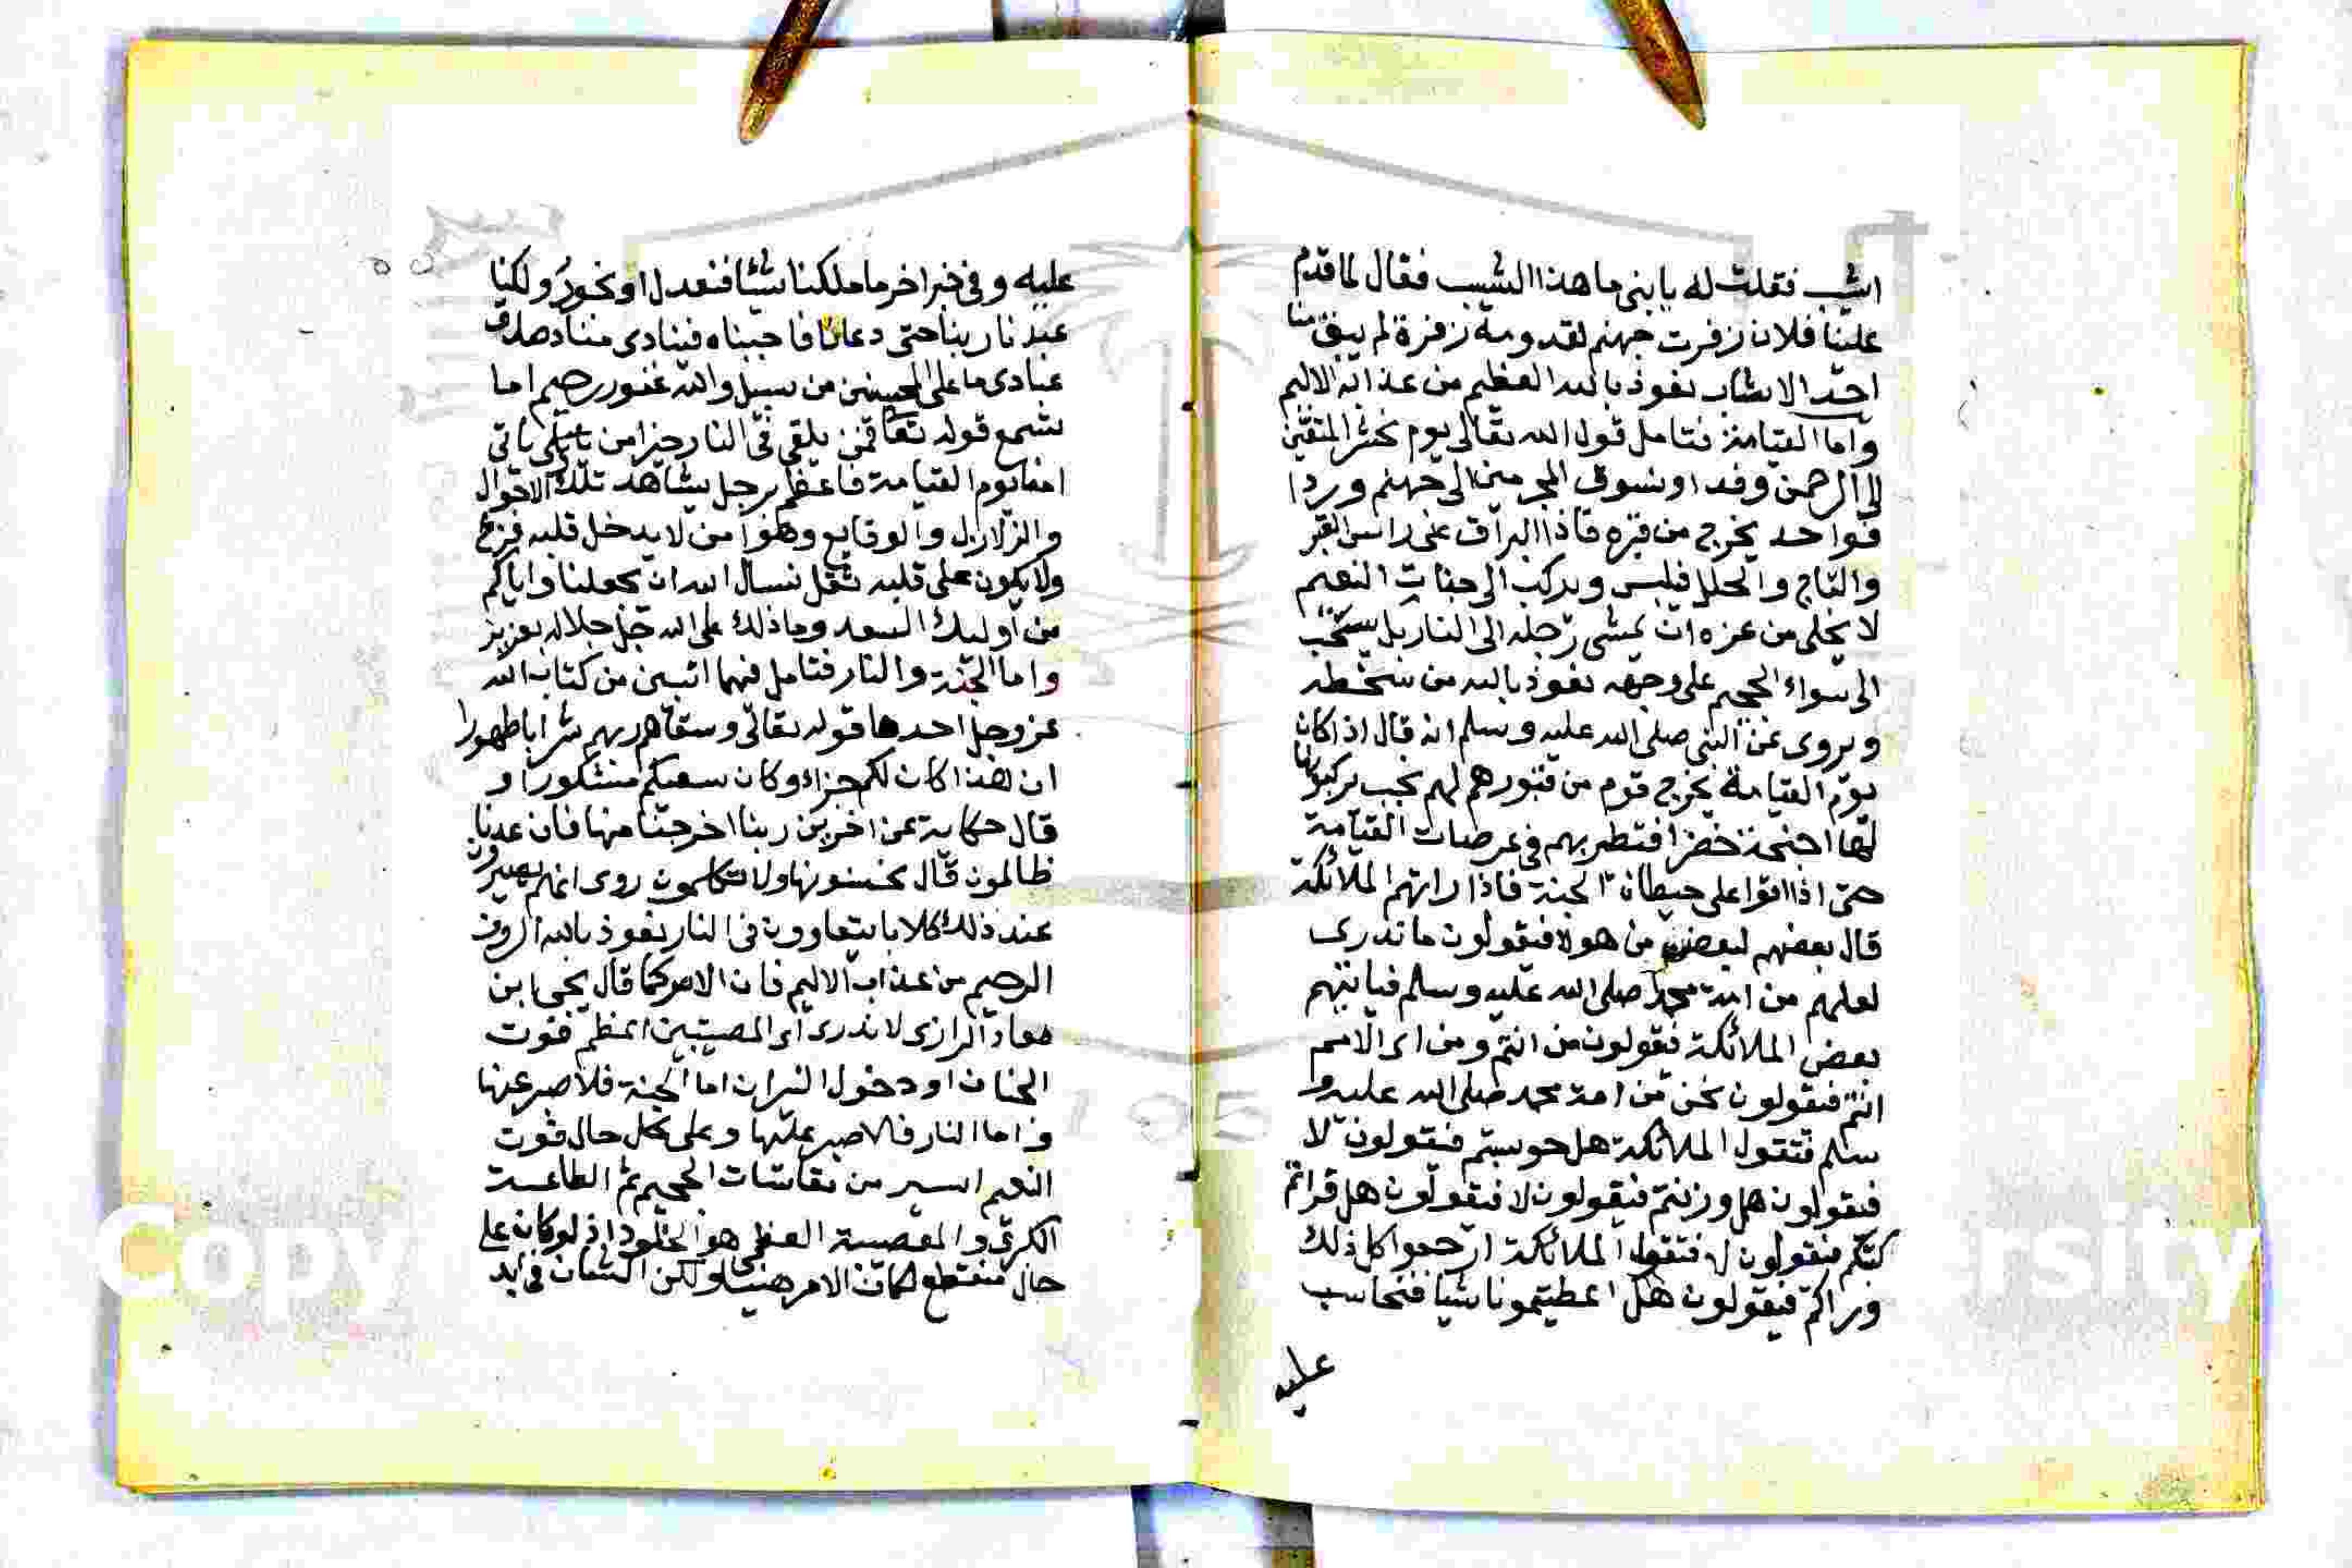 اشيب فقلت له يا بنى ما هذا الشيب فقال لما قدم
علينا فلان زفرت جهنم لقدومه زفرة لم يبق منا
احد الا شاب نعوذ بالله العظيم من عذابه الاليم
واما القيامة فتامل قول الله تعالى يوم نحشر المتقين
الى الرحمن وفدا ونسوق المجرمين الى جهنم وردا
فواحد يخرج من قبره فاذا البراق على راس القبر
والتاج والحلل فيلبس ويركب الى جنات النعيم
لا يخلى من عزه ان يمشى رجله الى النار بل يسحب
الى سواء الجحيم على وجهه نعوذ بالله من سخطه
ويروى عن النبى صلى الله عليه وسلم انه قال اذا كان
يوم القيامة يخرج قوم من قبورهم لهم نجب يركبونها
لها اجنحة خضرا فتطير بهم فى عرصات القيامة
حتى اذا اتوا على حيطان الجنة فاذا راتهم الملائكة
قال بعضهم لبعض من هولا فيقولون ما ندرى
لعلهم من امة محمد صلى الله عليه وسلم فياتيهم
بعض الملائكة فيقولون من انتم ومن اى الامم
انتم فيقولون نحن من امة محمد صلى الله عليه و
سلم فتقول الملائكة هل حوسبتم فيقولون لا
فيقولون هل وزنتم فيقولون لا فيقولون هل قراتم
كتبكم فيقولون لا فتقول الملائكة ارجعوا كل ذلك
وراكم فيقولون هل اعطيتمونا شيا فنحاسب
عليه
عليه وفى خبر اخر ما ملكنا شيئا فنعدل او نجور ولكنا
عبدنا ربنا حتى دعانا فاجبناه فينادى مناد صدق
عبادى ما على المحسنين من سبيل والله غفور رحيم اما
تسمع قوله تعا افمن يلقى فى النار خير امن ياتى
امنا يوم القيامة فاعظم برجل يشاهد تلك الاهوال
والزلازل والوقايع وهو امن لا يدخل قلبه فزع
ولا يكون على قلبه ثقل نسال الله ان يجعلنا واياكم
من اوليك السعد وما ذلك على الله جل جلاله بعزيز
واما الجنة والنار فتامل فيهما اثنين من كتاب الله
عز وجل احدها قوله تعالى وسقاهم ربهم شرابا طهورا
ان هذا كان لكم جزاء وكان سعيكم مشكورا و
قال حكاية عن اخرين ربنا اخرجنا منها فان عدنا
ظالمون قال اخسئو فيها ولا تكلمون روى انهم يصيرون
عند ذلك كلابا يتعاوون فى النار نعوذ بالله الروف
الرحيم من عذاب الاليم فان الامر كما قال يحيى ابن
معاذ الرازى لا ندرى اى المصيبتين اعظم فوت
الجنان او دخول النيران اما الجنة فلا صبر عنها
واما النار فلا صبر عليها وعلى كل حال فوت
النعيم ايسر من مقاسات الجحيم ثم الطامة
الكبرى والمصيبة العظمى هو الخلود اذ لو كان على
حال منقطع لكان الامر هينا ولكن الشان فى ابد